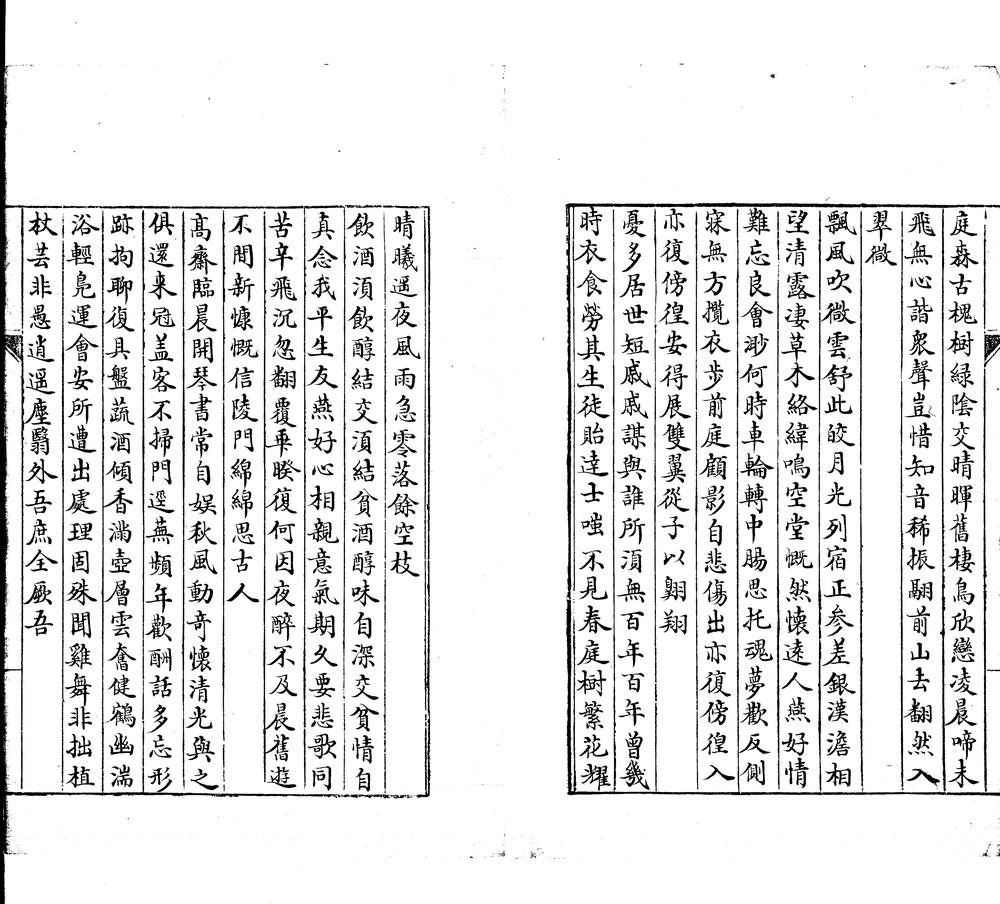 庭森古槐樹緑陰交晴暉舊棲鳥欣戀凌晨啼未
飛無心諧衆聲豈惜知音稀振翮前山去翻然入
翠微
飄風吹微雲舒此皎月光列宿正参差銀漢澹相
望清露凄草木絡緯鳴空堂慨然懷遠人燕好情
難忘良會渺何時車輪轉中腸思托魂夢歡反側
寐無方攬衣步前庭顧影自悲傷出亦復傍徨入
亦復傍徨安得展雙翼從子以翺翔
憂多居世短戚戚謀與誰所湏無百年百年曾幾
時衣食勞其生徒貽達士嗤不見春庭樹繁花耀
晴曦遥夜風雨急零落餘空枝
飲酒湏飲醇結交湏結貧酒醇味自深交貧情自
真念我平生友燕好心相親意氣期久要悲歌同
苦辛飛沉忽翻覆乖睽復何因夜醉不及晨舊遊
不間新慷慨信陵門綿綿思古人
髙齋臨晨開琴書常自娱秋風動竒懷清光與之
俱還来冠盖客不掃門逕蕪頻年歡酬話多忘形
跡拘聊復具盤蔬酒傾香滿壺層雲奮健鶴幽湍
浴輕鳬運會安所遭出處理固殊聞雞舞非拙植
杖芸非愚逍遥塵翳外吾庶全厥吾